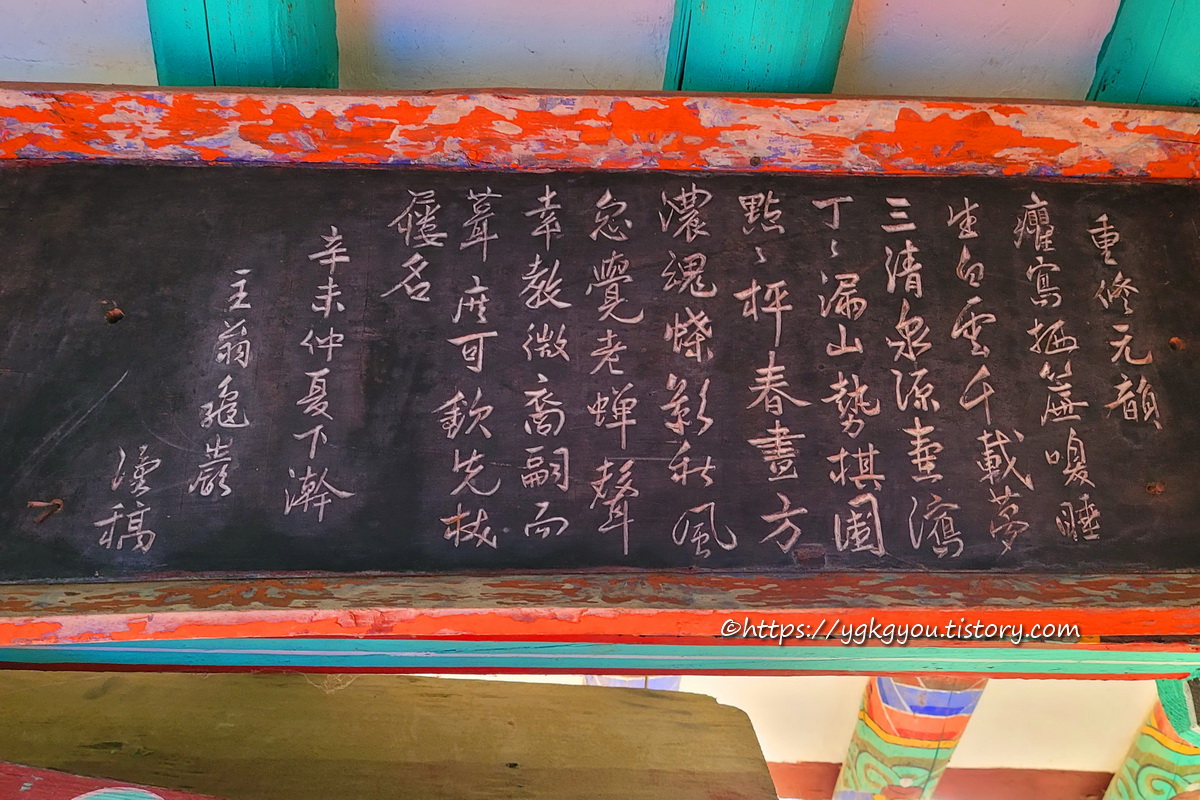 重修元韻
癯栖簷嗅睡
生白雲千載夢
三清泉源壷瀉
丁〻漏山勢棋圍
點〻枰春晝方
濃魂蝶影秋風
忽覺老蟬聲
幸敎微裔嗣而
葺庶可欽先杖
屨名
辛未仲夏下澣
主翁龜巖
瀆稿
©https://ygkgyou.tistory.com